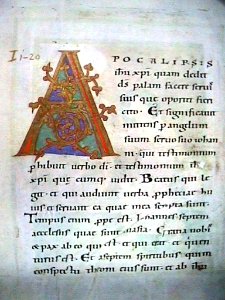 I 1-20
APOCALIPSIS
ihu xpi quam dedit
ds palam facere seruis
suis que oportet fieri
cito Et significauit
mittens p angelum
suum seruo suo iohan
ni qui testimonium
phibuit uerbo di et testimonium ihu
xpi que cumque uidit Beatus qui le
git et qui audiunt uerba pphetiae hui
us et seruant ea quae in ea scripta sunt
Tempus enim ppe est Iohannes septem
ecclesiis quae sunt in asia Gratia uobis
et pax ab eo qui est et qui erat et qui uen
turus est Et a septem spiritibus qui in
conspectu throni eius sunt et ab ihu